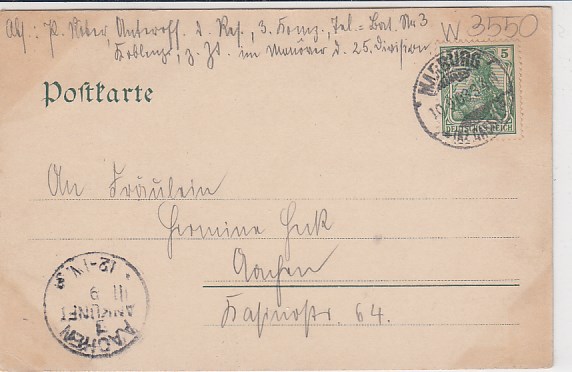 Abs: P. Weber, Unteroff. d. Res., 3. Komp., Tel.-Bat. Nr 3
Koblenz, z. Zt. im Manöver d. 25. Division.
W 3550
Postkarte
5
MARBURG
DEUTSCHES REICH
An Fräulein
Hermine Heck
Aachen
Kasinostr. 64.
AACHEN
ANKUNFT
12-1 N.